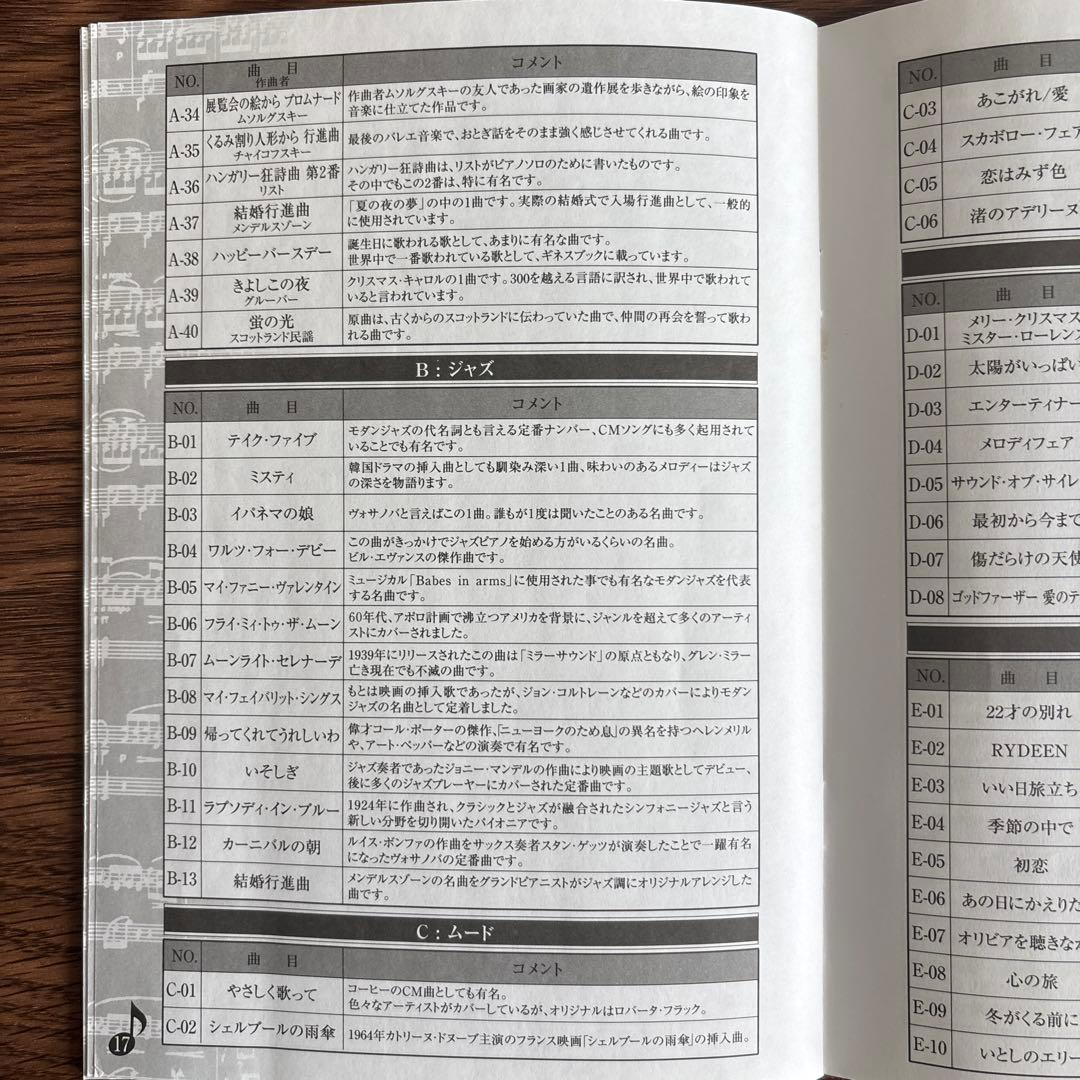 NO.
曲 目
作曲者
コメント
A-34
展覧会の絵から プロムナード
ムソルグスキー
作曲者ムソルグスキーの友人であった画家の遺作展を歩きながら、絵の印象を
音楽に仕立てた作品です。
A-35
くるみ割り人形から 行進曲
チャイコフスキー
最後のバレエ音楽で、おとぎ話をそのまま強く感じさせてくれる曲です。
A-36
ハンガリー狂詩曲 第2番
リスト
ハンガリー狂詩曲は、リストがピアノソロのために書いたものです。
その中でもこの2番は、特に有名です。
A-37
結婚行進曲
メンデルスゾーン
「夏の夜の夢」の中の1曲です。実際の結婚式で入場行進曲として、一般的
に使用されています。
A-38
ハッピーバースデー
誕生日に歌われる歌として、あまりに有名な曲です。
世界中で一番歌われている歌として、ギネスブックに載っています。
A-39
きよしこの夜
グルーバー
クリスマス・キャロルの1曲です。300を越える言語に訳され、世界中で歌われて
いると言われています。
A-40
蛍の光
スコットランド民謡
原曲は、古くからのスコットランドに伝わっていた曲で、仲間の再会を誓って歌わ
れる曲です。
B:ジャズ
NO.
曲 目
コメント
B-01
テイク・ファイブ
モダンジャズの代名詞とも言える定番ナンバー、CMソングにも多く起用されて
いることでも有名です。
B-02
ミスティ
韓国ドラマの挿入曲としても馴染み深い1曲、味わいのあるメロディーはジャズ
の深さを物語ります。
B-03
イパネマの娘
ヴォサノバと言えばこの1曲。誰もが1度は聞いたことのある名曲です。
B-04
ワルツ・フォー・デビー
この曲がきっかけでジャズピアノを始める方がいるくらいの名曲。
ビル・エヴァンスの傑作曲です。
B-05
マイ・ファニー・ヴァレンタイン
ミュージカル「Babes in arms」に使用された事でも有名なモダンジャズを代表
する名曲です。
B-06
フライ・ミィ・トゥ・ザ・ムーン
60年代、アポロ計画で沸立つアメリカを背景に、ジャンルを超えて多くのアーティ
ストにカバーされました。
B-07
ムーンライト・セレナーデ
1939年にリリースされたこの曲は「ミラーサウンド」の原点ともなり、グレン・ミラー
亡き現在でも不滅の曲です。
B-08
マイ・フェイバリット・シングス
もとは映画の挿入歌であったが、ジョン・コルトレーンなどのカバーによりモダン
ジャズの名曲として定着しました。
B-09
帰ってくれてうれしいわ
偉才コール・ポーターの傑作、「ニューヨークのため息」の異名を持つヘレンメリル
や、アート・ペッパーなどの演奏で有名です。
B-10
いそしぎ
ジャズ奏者であったジョニー・マンデルの作曲により映画の主題歌としてデビュー、
後に多くのジャズプレーヤーにカバーされた定番曲です。
B-11
ラプソディ・イン・ブルー
1924年に作曲され、クラシックとジャズが融合されたシンフォニージャズと言う
新しい分野を切り開いたパイオニアです。
B-12
カーニバルの朝
ルイス・ボンファの作曲をサックス奏者スタン・ゲッツが演奏したことで一躍有名
になったヴォサノバの定番曲です。
B-13
結婚行進曲
メンデルスゾーンの名曲をグランドピアニストがジャズ調にオリジナルアレンジした
曲です。
C:ムード
NO.
曲 目
コメント
C-01
やさしく歌って
コーヒーのCM曲としても有名。
色々なアーティストがカバーしているが、オリジナルはロバータ・フラック。
C-02
シェルブールの雨傘
1964年カトリーヌ・ドヌーブ主演のフランス映画「シェルブールの雨傘」の挿入曲。
17
NO.
曲 目
C-03
あこがれ/愛
C-04
スカボロー・フェア
C-05
恋はみず色
C-06
渚のアデリーヌ
NO.
曲 目
D-01
メリー・クリスマス
ミスター・ローレン
D-02
太陽がいっぱい
D-03
エンターティナー
D-04
メロディフェア
D-05
サウンド・オブ・サイレ
D-06
最初から今まで
D-07
傷だらけの天使
D-08
ゴッドファーザー 愛のテ
NO.
曲 目
E-01
22才の別れ
E-02
RYDEEN
E-03
いい日旅立ち
E-04
季節の中で
E-05
初恋
E-06
あの日にかえりた
E-07
オリビアを聴きなが
E-08
心の旅
E-09
冬がくる前に
E-10
いとしのエリー